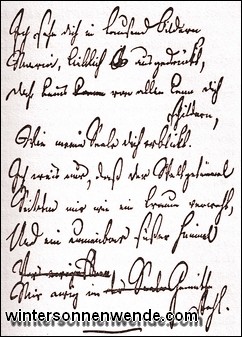 Ich sehe dich in tausend Bildern
Maria, lieblich ausgedrückt,
Doch keins von allen kann dich
schildern,
Wie meine Seele dich erblickt.
Ich weis nur, daß der Weltgetümmel
Seitdem mir wie ein Traum verweht,
Und ein unnennbar süßer Himmel
Mir ewig im Gemüthe
steht.
wintersonnenwende.com